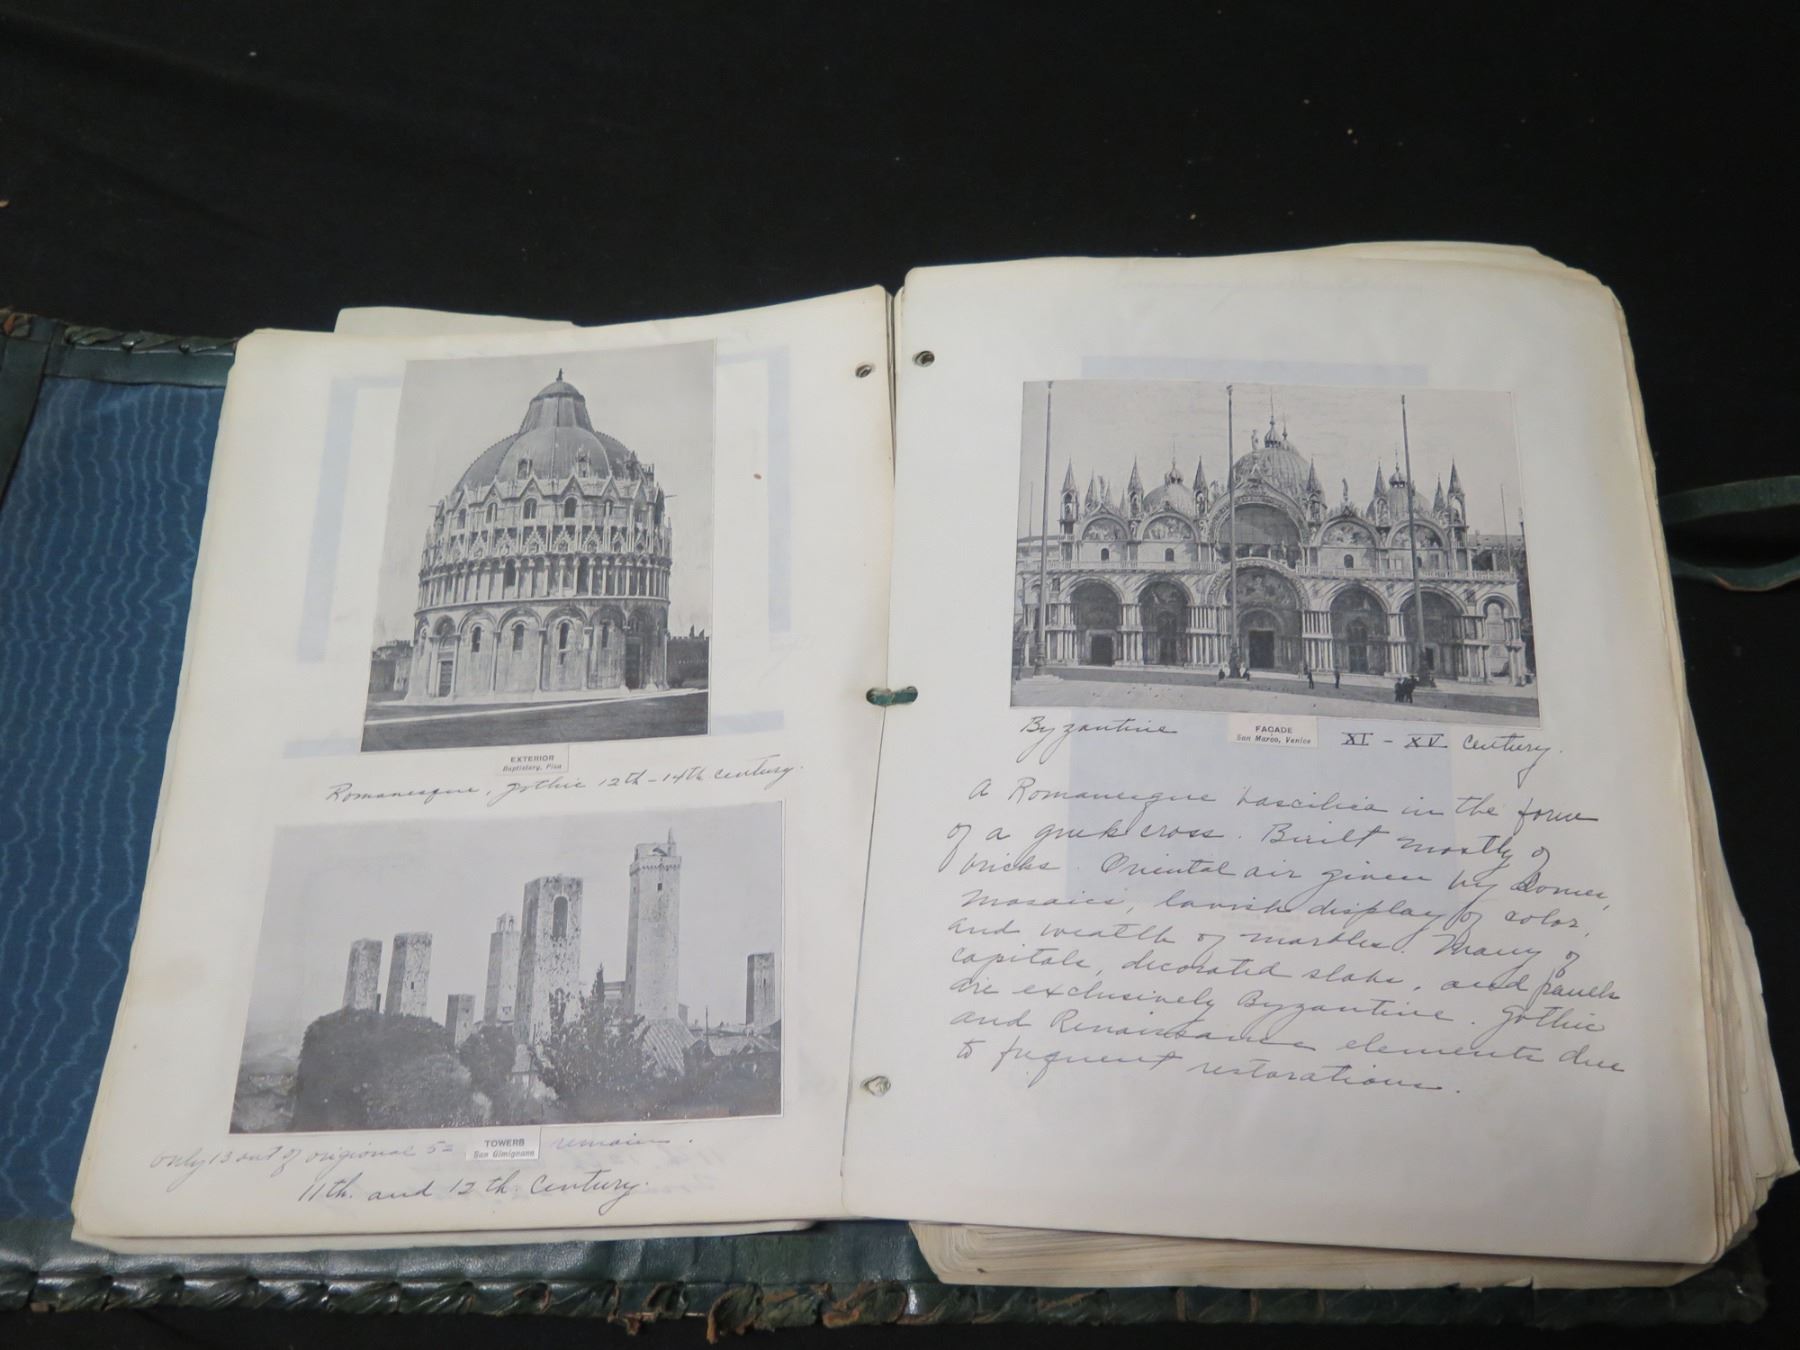 EXTERIOR
Baptistery, Pisa
Romanesque, gothic 12th - 14th century.
TOWERS
San Gimignano
only 13 out of origional 50 remain.
11th. and 12th. Century.
FACADE
San Marco, Venice
Byzantine XI - XV Century.
A Romanesque bascilica in the form
of a greek cross. Built mostly of
bricks. Oriental air given by domes,
mosaics, lavish display of color,
and wealth of marbles. Many of
capitals, decorated slabs, and panels
are exclusively Byzantine. Gothic
and Renaissance elements due
to frequent restorations.